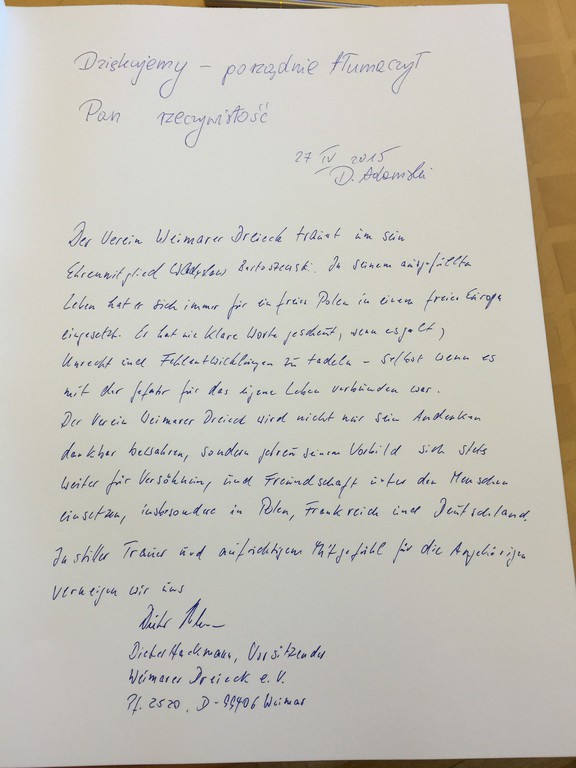 Dziękujemy – porządnie tłumaczył
Pan rzeczywistość
27 IV 2015
D. Adamski
Der Verein Weimarer Dreieck trauert um sein
Ehrenmitglied Władysław Bartoszewski. In seinem ausgefüllten
Leben hat er sich immer für ein freies Polen in einem freien Europa
eingesetzt. Er hat nie klare Worte gescheut, wenn es galt,
Unrecht und Fehlentwicklungen zu tadeln – selbst wenn es
mit der Gefahr für das eigene Leben verbunden war.
Der Verein Weimarer Dreieck wird nicht nur sein Andenken
dankbar bewahren, sondern getreu seinem Vorbild sich stets
weiter für Versöhnung und Freundschaft unter den Menschen
einsetzen, insbesondere in Polen, Frankreich und Deutschland.
In stiller Trauer und aufrichtigem Mitgefühl für die Angehörigen
verneigen wir uns
Dieter
Dieter Hackmann, Vorsitzender
Weimarer Dreieck e.V.
Pf. 2520, D-99406 Weimar